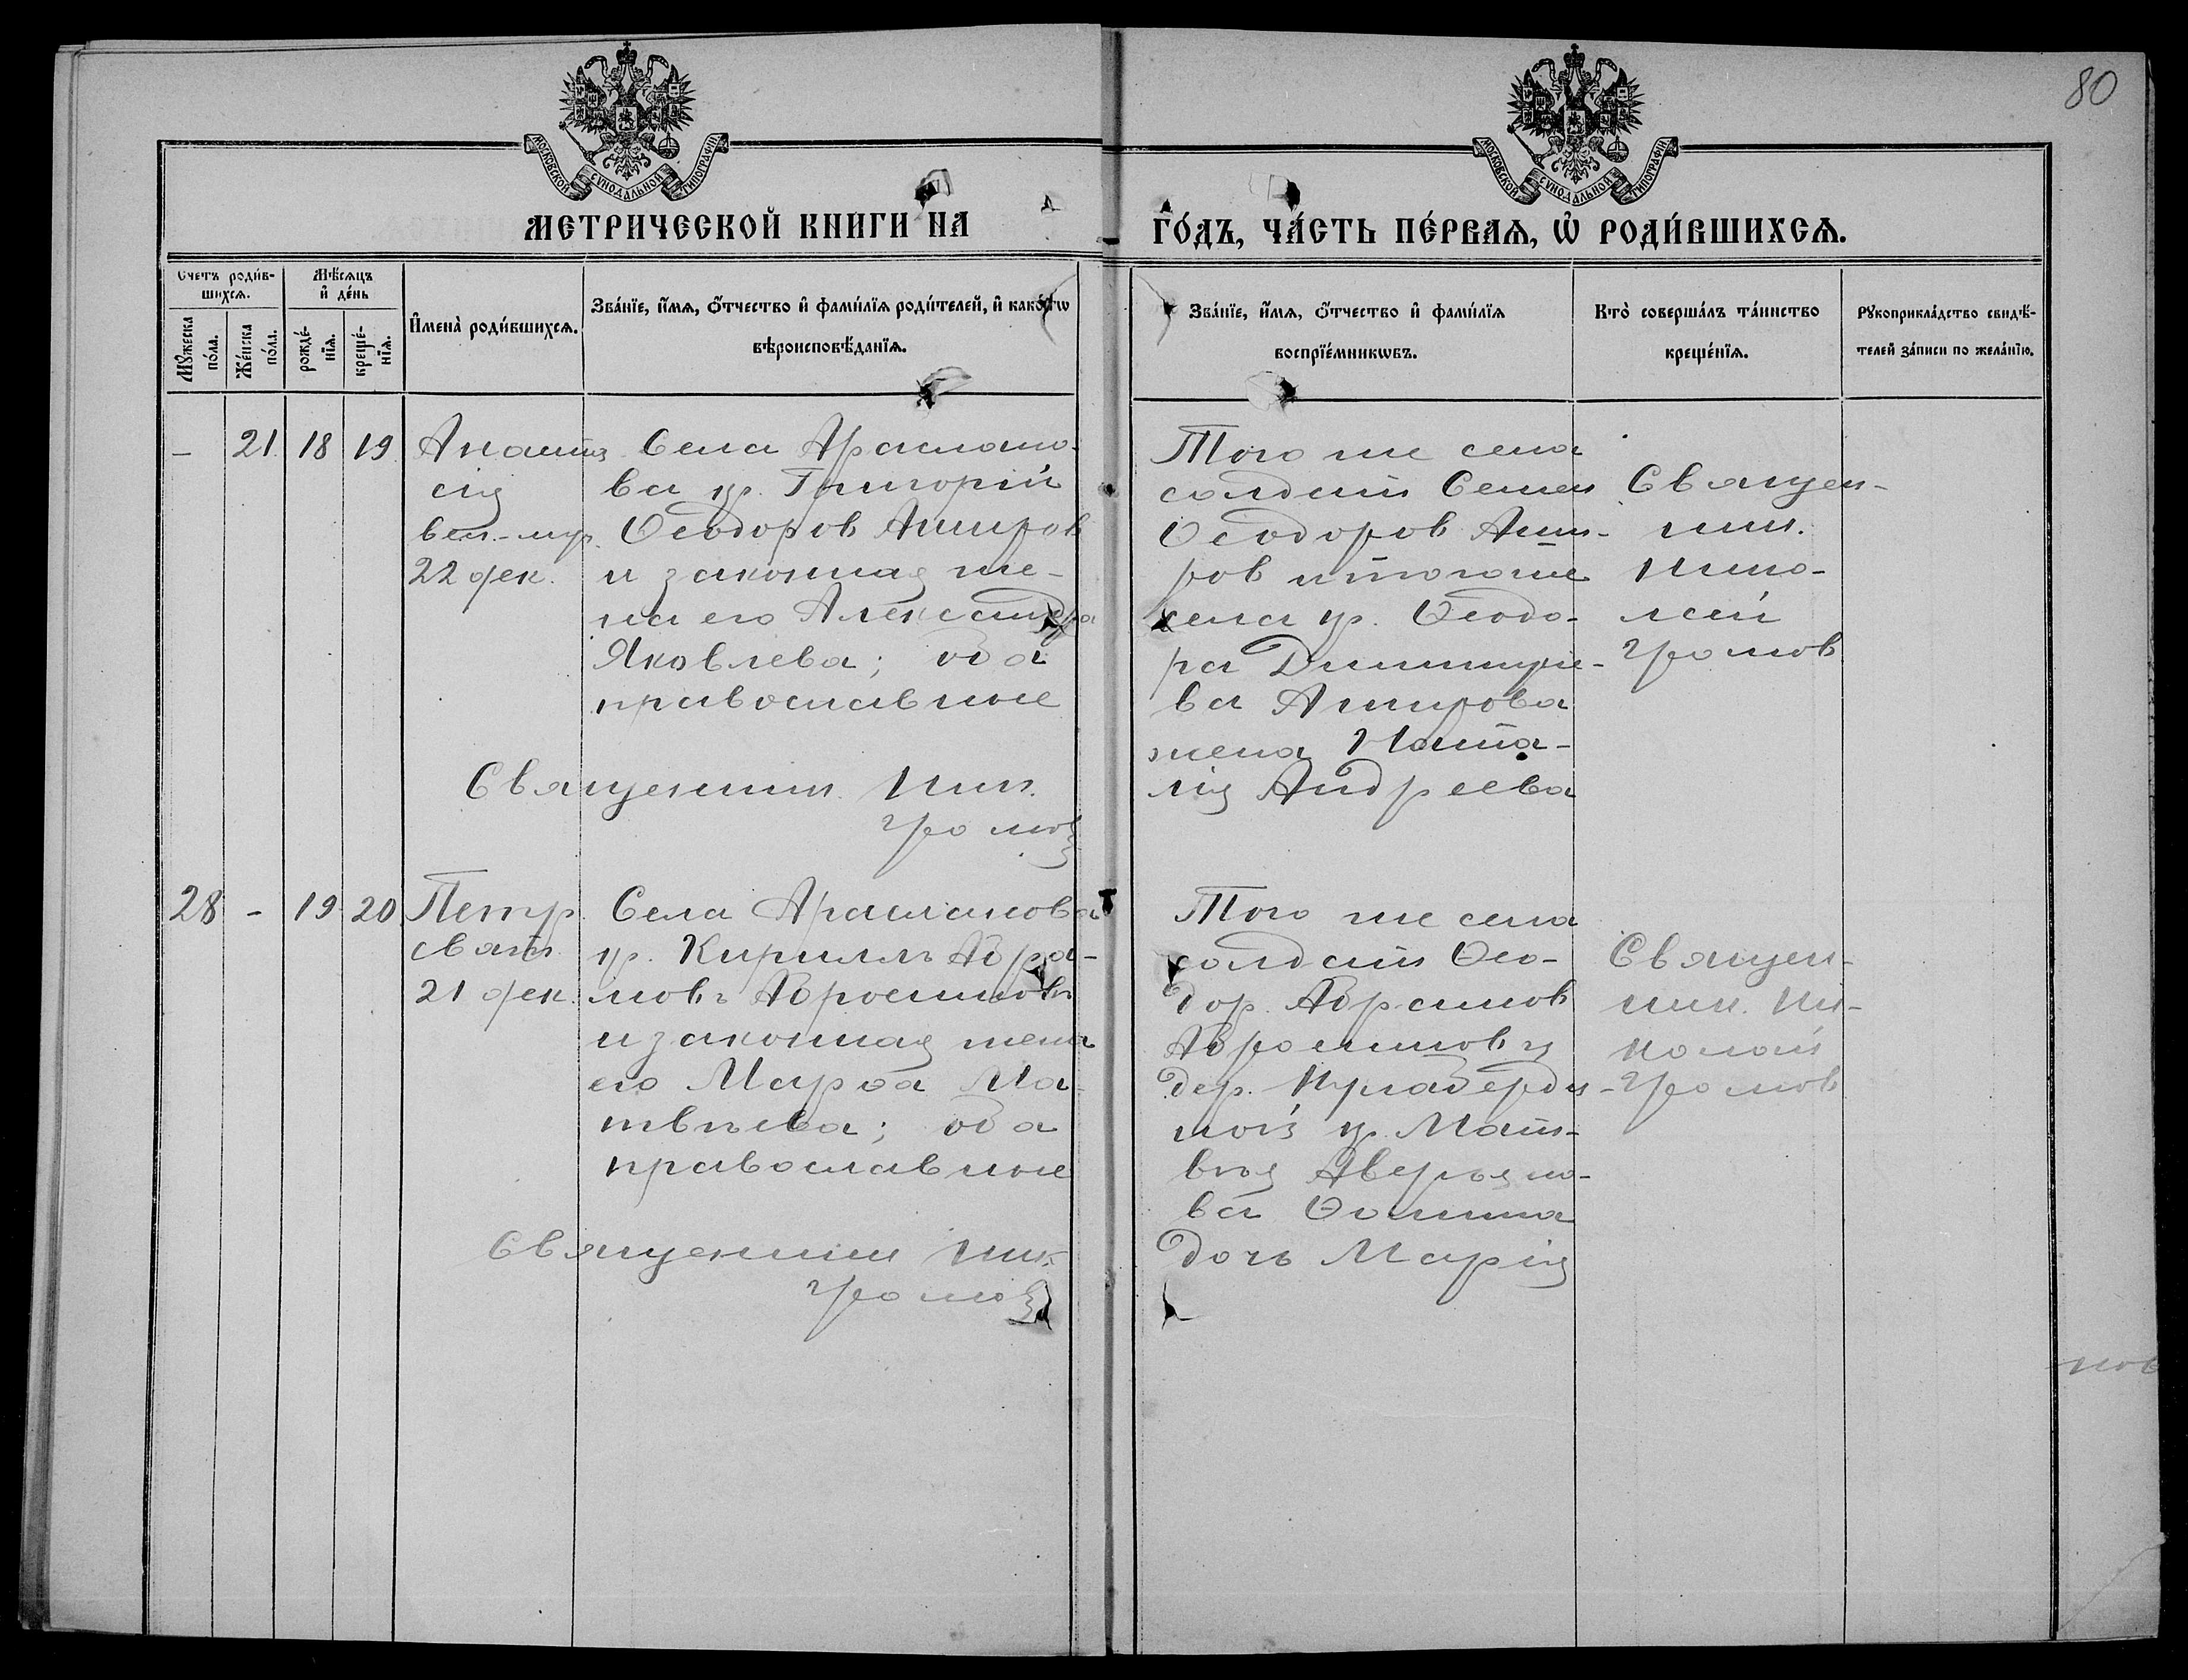 80
МОСКОВСКОЙ СѴНОДАЛЬНОЙ ТИПОГРАФІИ
МОСКОВСКОЙ СѴНОДАЛЬНОЙ ТИПОГРАФІИ
МЕТРИЧЕСКОЙ КНИГИ НА
ГО́ДЪ, ЧА́СТЬ ПЕ́РВАЯ, Ѡ҆ РОДИ́ВШИХСЯ.
Счетъ роди́в-
шихся.
Мѣ́сяцъ
и҆ де́нь
Мꙋ́жеска
по́ла.
Же́нска
по́ла.
рожде́-
нїя.
креще́-
нїя.
И҆мена̀ роди́вшихся.
Зва́нїе, и҆́мя, ѻ҆́тчество и҆ фами́лїя роди́телей, и҆ како́гѡ
вѣроисповѣ́данїя.
Зва́нїе, и҆́мя, ѻ҆́тчество и҆ фами́лїя
воспрїе́мникѡвъ.
Кто̀ соверша́лъ та́инство
креще́нїя.
Рꙋкоприкла́дство свидѣ́-
телей за́писи по жела́нїю.
- 21 18 19
Анаста
сія
вел.-муч.
22 дек.
Села Арасланo-
ва кр. Григорій
Ѳеодоров Амиров
и законная же-
на его Александра
Яковлева; оба
православные
Священник Ник.
Громов
Того же села
солдат Семен
Ѳеодоров Ами-
ров и того же
села кр. Ѳеодо-
ра Димитрие-
ва Амирова
жена Ната-
лія Андреева
Священ-
ник.
Нико-
лай
Громов
28 - 19 20
Петр
свят.
21 дек.
Села Арасланова
кр. Кириллъ Абра-
мовъ
и законная жена
его Марѳа Ма-
твѣева; оба
православные
Священник Ник.
Громов
Того же села
солдат Ѳео-
дор. Абрамов
дер.
ной кр. Мат-
вѣя Аверьяно-
ва Ѳомина
дочь Марія
Священ-
ник. Ни-
колай
Громов
нов